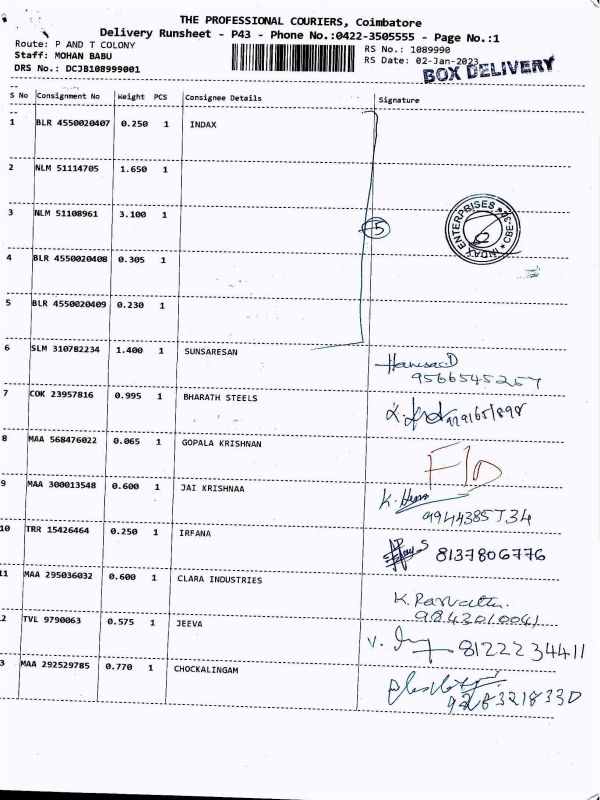 THE PROFESSIONAL COURIERS, Coimbatore
Delivery Runsheet - P43 - Phone No.:0422-3505555 - Page No.:1
Route: P AND T COLONY
RS No.: 1089990
Staff: MOHAN BABU
RS Date: 02-Jan-2023
DRS No.: DCJB108999001
BOX DELIVERY
S No Consignment No Weight PCS Consignee Details Signature
1 BLR 4550020407 0.250 1 INDAX
2 NLM 51114705 1.650 1
3 NLM 51108961 3.100 1
5
INDAX ENTERPRISES * CBE-32 *
4 BLR 4550020408 0.305 1
5 BLR 4550020409 0.230 1
6 SLM 310782234 1.400 1 SUNSARESAN
9566545257
7 COK 23957816 0.995 1 BHARATH STEELS
8 MAA 568476022 0.065 1 GOPALA KRISHNAN
9 MAA 300013548 0.600 1 JAI KRISHNAA
9944385734
10 TRR 15426464 0.250 1 IRFANA
8137806776
11 MAA 295036032 0.600 1 CLARA INDUSTRIES
K. Parvathi
9843010041
2 TVL 9790063 0.575 1 JEEVA
8122234411
3 MAA 292529785 0.770 1 CHOCKALINGAM